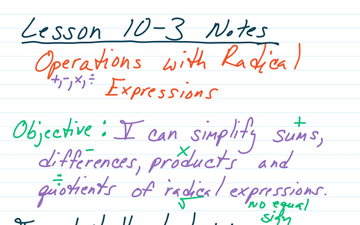 Lesson 10-3 Notes
Operations with Radical
+,-,×,÷
Expressions
Objective: I can simplify sums,
+
differences, products and
- ×
quotients of radical expressions.
÷ √
no equal
sign